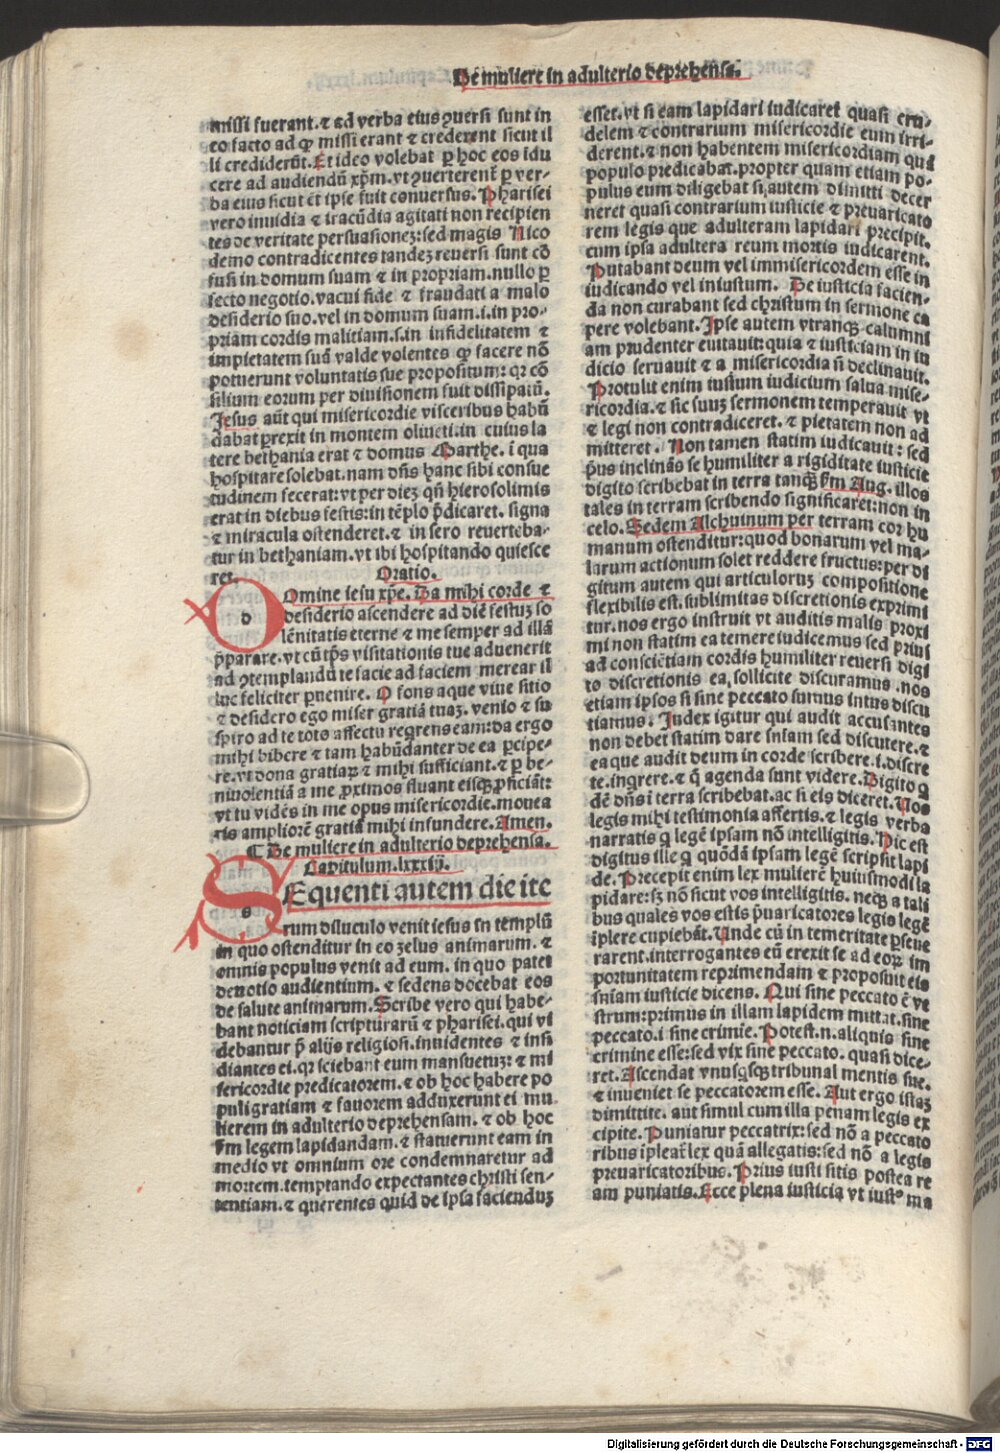 De muliere in adulterio deprehensa.
missi fuerant. ⁊ ad verba eius ꝯuersi sunt in
eo facto ad qđ missi erant ⁊ crederent sicut il
li crediderūt. Et ideo volebat ꝑ hoc eos idu
cere ad audiendū xp̄m. vt ꝯuerterent̄ ꝑ ver-
ba eius sicut ⁊t ipse fuit conversus. Pharisei
vero inuidia ⁊ iracūdia agitati non recipien
tes de veritate persuasionez: sed magis Nico
demo contradicentes tandez reuersi sunt cō
fusi in domum suam ⁊ in propriam. nullo ꝑ
fecto negotio. vacui fide ⁊ fraudati a malo
desiderio suo. vel in domum suam. i. in pro-
priam cordis malitiam. s. in infidelitatem ⁊
impietatem suā valde volentes qđ facere nō
potuerunt voluntatis sue propositum: qꝛ cō
silium eorum per divisionem fuit dissipatū.
Jesus aūt qui misericordie visceribus habū
dabat ꝑrexit in montem oliueti. in cuius la
tere bethania erat ⁊ domus Marthe. ī qua
hospitare solebat. nam dn̄s hanc sibi consue
tudinem fecerat: vt per diez qn̄ hierosolimis
erat in diebus festis: in tēplo p̄dicaret. signa
⁊ miracula ostenderet. ⁊ in sero reuerteba-
tur in bethaniam. vt ibi hospitando quiesce
ret. Oratio.
Domine iesu xp̄e. Da mihi corde ⁊
desiderio ascendere ad diē festuz so
lēnitatis eterne ⁊ me semper ad illā
p̄parare. vt cū tp̄s visitationis tue aduenerit
ad ꝯtemplandū te facie ad faciem merear il
luc feliciter ꝑuenire. O fons aque viue sitio
⁊ desidero ego miser gratiā tuaz. venio ⁊ su
spiro ad te toto affectu reqrens eam: da ergo
mihi bibere ⁊ tam habūdanter de ea ꝑcipe-
re. vt dona gratiaꝝ ⁊ mihi sufficiant. ⁊ ꝑ be-
niuolentiā a me ꝓximos fluant eisqꝫ ꝓficiāt:
vt tu vidēs in me opus misericordie. mouea
ris ampliorē gratiā mihi infundere. Amen.
¶ De muliere in adulterio deprehensa.
Capitulum. lxxxiij.
SEquenti autem die ite
rum diluculo venit iesus in templū
in quo ostenditur in eo zelus animarum. ⁊
omnis populus venit ad eum. in quo patet
deuotio audientium. ⁊ sedens docebat eos
de salute animarum. Scribe vero qui habe-
bant noticiam scripturarū ⁊ pharisei. qui vi
debantur p̄ alijs religiosi. inuidentes ⁊ insi
diantes ei. qꝛ sciebant eum mansuetuz: ⁊ mi
sericordie predicatorem. ⁊ ob hoc habere po
puli gratiam ⁊ fauorem adduxerunt ei mu.
lierem in adulterio deprehensam. ⁊ ob hoc
ẜm legem lapidandam. ⁊ statuerunt eam in
medio vt omnium ore condemnaretur ad
mortem. temptando expectantes christi sen-
tentiam. ⁊ querentes quid de ipsa facienduz
esset. vt si eam lapidari iudicaret quasi cru-
delem ⁊ contrarium misericordie eum irri-
derent. ⁊ non habentem misericordiam quā
populo predicabat. propter quam etiam po-
pulus eum diligebat si, autem dimitti decer
neret quasi contrarium iusticie ⁊ preuaricato
rem legis que adulteram lapidari precipit.
cum ipsa adultera reum mortis iudicarent.
Putabant deum vel immisericordem esse in
iudicando vel iniustum. De iusticia facien-
da non curabant sed christum in sermone ca
pere volebant. Ipse autem vtranqꝫ calumni
am prudenter euitauit: quia ⁊ iusticiam in iu
dicio seruauit ⁊ a misericordia n̄ declinauit.
Protulit enim iustum iudicium salua mise-
ricordia. ⁊ sic suuz sermonem temperauit vt
⁊ legi non contradiceret. ⁊ pietatem non ad
mitteret. Non tamen statim iudicauit: sed
p̄us inclinās se humiliter a rigiditate iusticie
digito scribebat in terra tanqꝫ ẜm Aug. illos
tales in terram scribendo significaret: non in
celo. Sedem Alchuinum per terram cor hu
manum ostenditur: quod bonarum vel ma-
larum actionum solet reddere fructus: per di
gitum autem qui articulorum compositione
flexibilis est. sublimitas discretionis exprimi
tur. nos ergo instruit vt auditis malis proxi
mi non statim ea temere iudicemus sed prius
ad consciētiam cordis humiliter reuersi digi
to discretionis ea, sollicite discutiamus. nos
etiam ipsos si sine peccato sumus intus discu
tiamus. Judex igitur qui audit accusantes
non debet statim dare sn̄iam sed discutere. ⁊
ea que audit deum in corde scribere. i. discre
te. ingrere. ⁊ q̄ agenda sunt videre. Digito q
dē dn̄s ī terra scribebat. ac si eis diceret. Vos
legis mihi testimonia affertis. ⁊ legis verba
narratis q̄ legē ipsam nō intelligitis. Hic est
digitus ille q̄ quōdā ipsam legē scripsit lapi
de. Precepit enim lex mulierē huiusmodi la
pidare: sꝫ nō sicut vos intelligitis. neqꝫ a tali
bus quales vos estis p̄uaricatores legis legē
īplere cupiebāt. Unde cū in temeritate ꝑseue
rarent. interrogantes eū erexit se ad eoꝝ im
portunitatem reprimendam ⁊ proposuit eis
sn̄iam iusticie dicens. Qui sine peccato ē ve
strum: primus in illam lapidem mittat. sine
peccato. i sine crimīe. Potest. n. aliquis sine
crimine esse: sed vix sine peccato. quasi dice-
ret. Ascendat vnusqsqꝫ tribunal mentis sue.
⁊ inueniet se peccatorem esse. Aut ergo istaꝫ
dimittite. aut simul cum illa penam legis ex
cipite. Puniatur peccatrix: sed nō a peccato
ribus īpleat̄ lex quā allegatis: sed nō a legis
preuaricatoribus. Prius iusti sitis postea re
am puniatis. Ecce plena iusticia vt iustꝰ ma
Digitalisierung gefördert durch die Deutsche Forschungsgemeinschaft - DFG